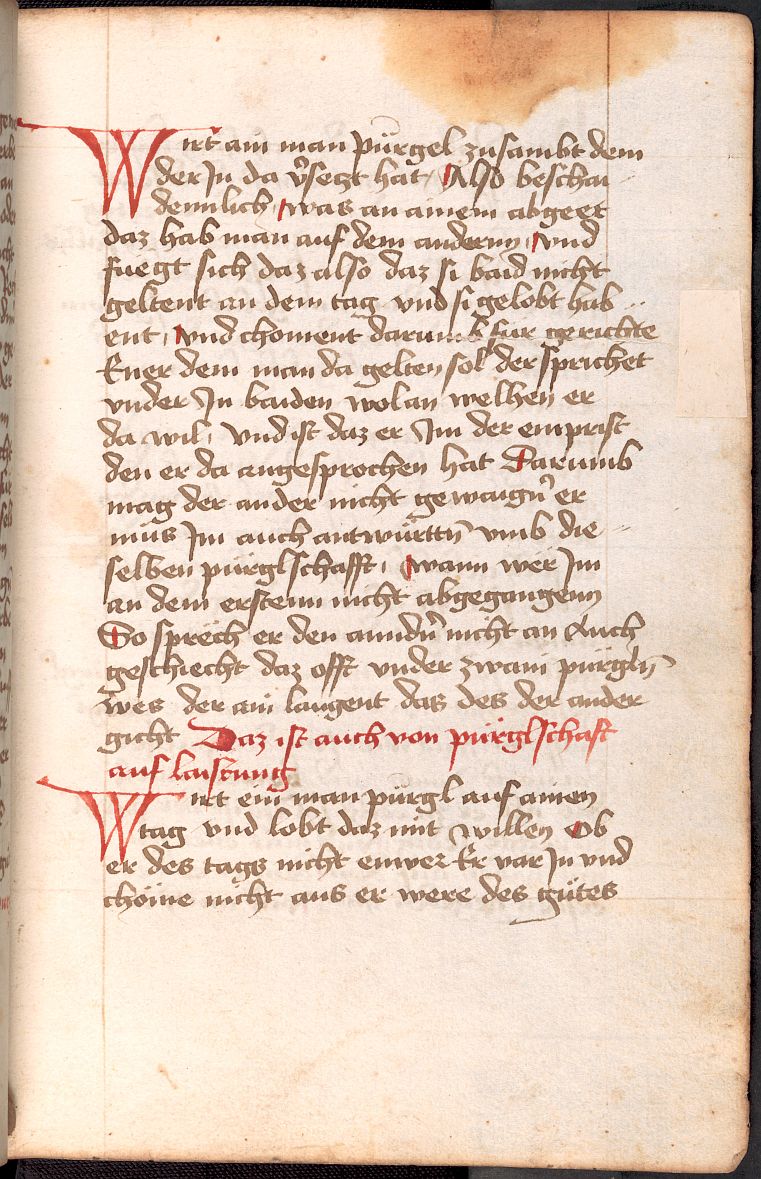 Wirt ain man pürgel zusambt dem
der In da v̉seczt hat Also beschai
dennlich was an ainem abgeet
daz hab man auf dem andernn vnd
fuegt sich daz also daz si baid nicht
geltent an dem tag vnd si gelobt hab
ent vnd choment darumb für gerichte
Ener dem man da gelten sol der sprichet
vnder In baiden wol an welhen er
da wil vnd ist daz er Im der emprist
den er da angesprochen hat Darumb
mag der ander nicht gewaign̄ er
müs Im auch antwürttn̄ vmb die
selben pürglschafft wann wër Im
an dem erstenn nicht abgegangenn
So sprëch er den anndn̉ nicht an Auch
geschiecht daz offt vnder zwain pürgln̄
wes der ain laugent das des der ander
gicht Daz ist auch von pürglschaft
auf laistung
Wirt ein man pürgl auf ainen
tag vnd lobt daz mit willen Ob
er des tags nicht enwer Er var In vnd
chöme nicht aus er were des gütes